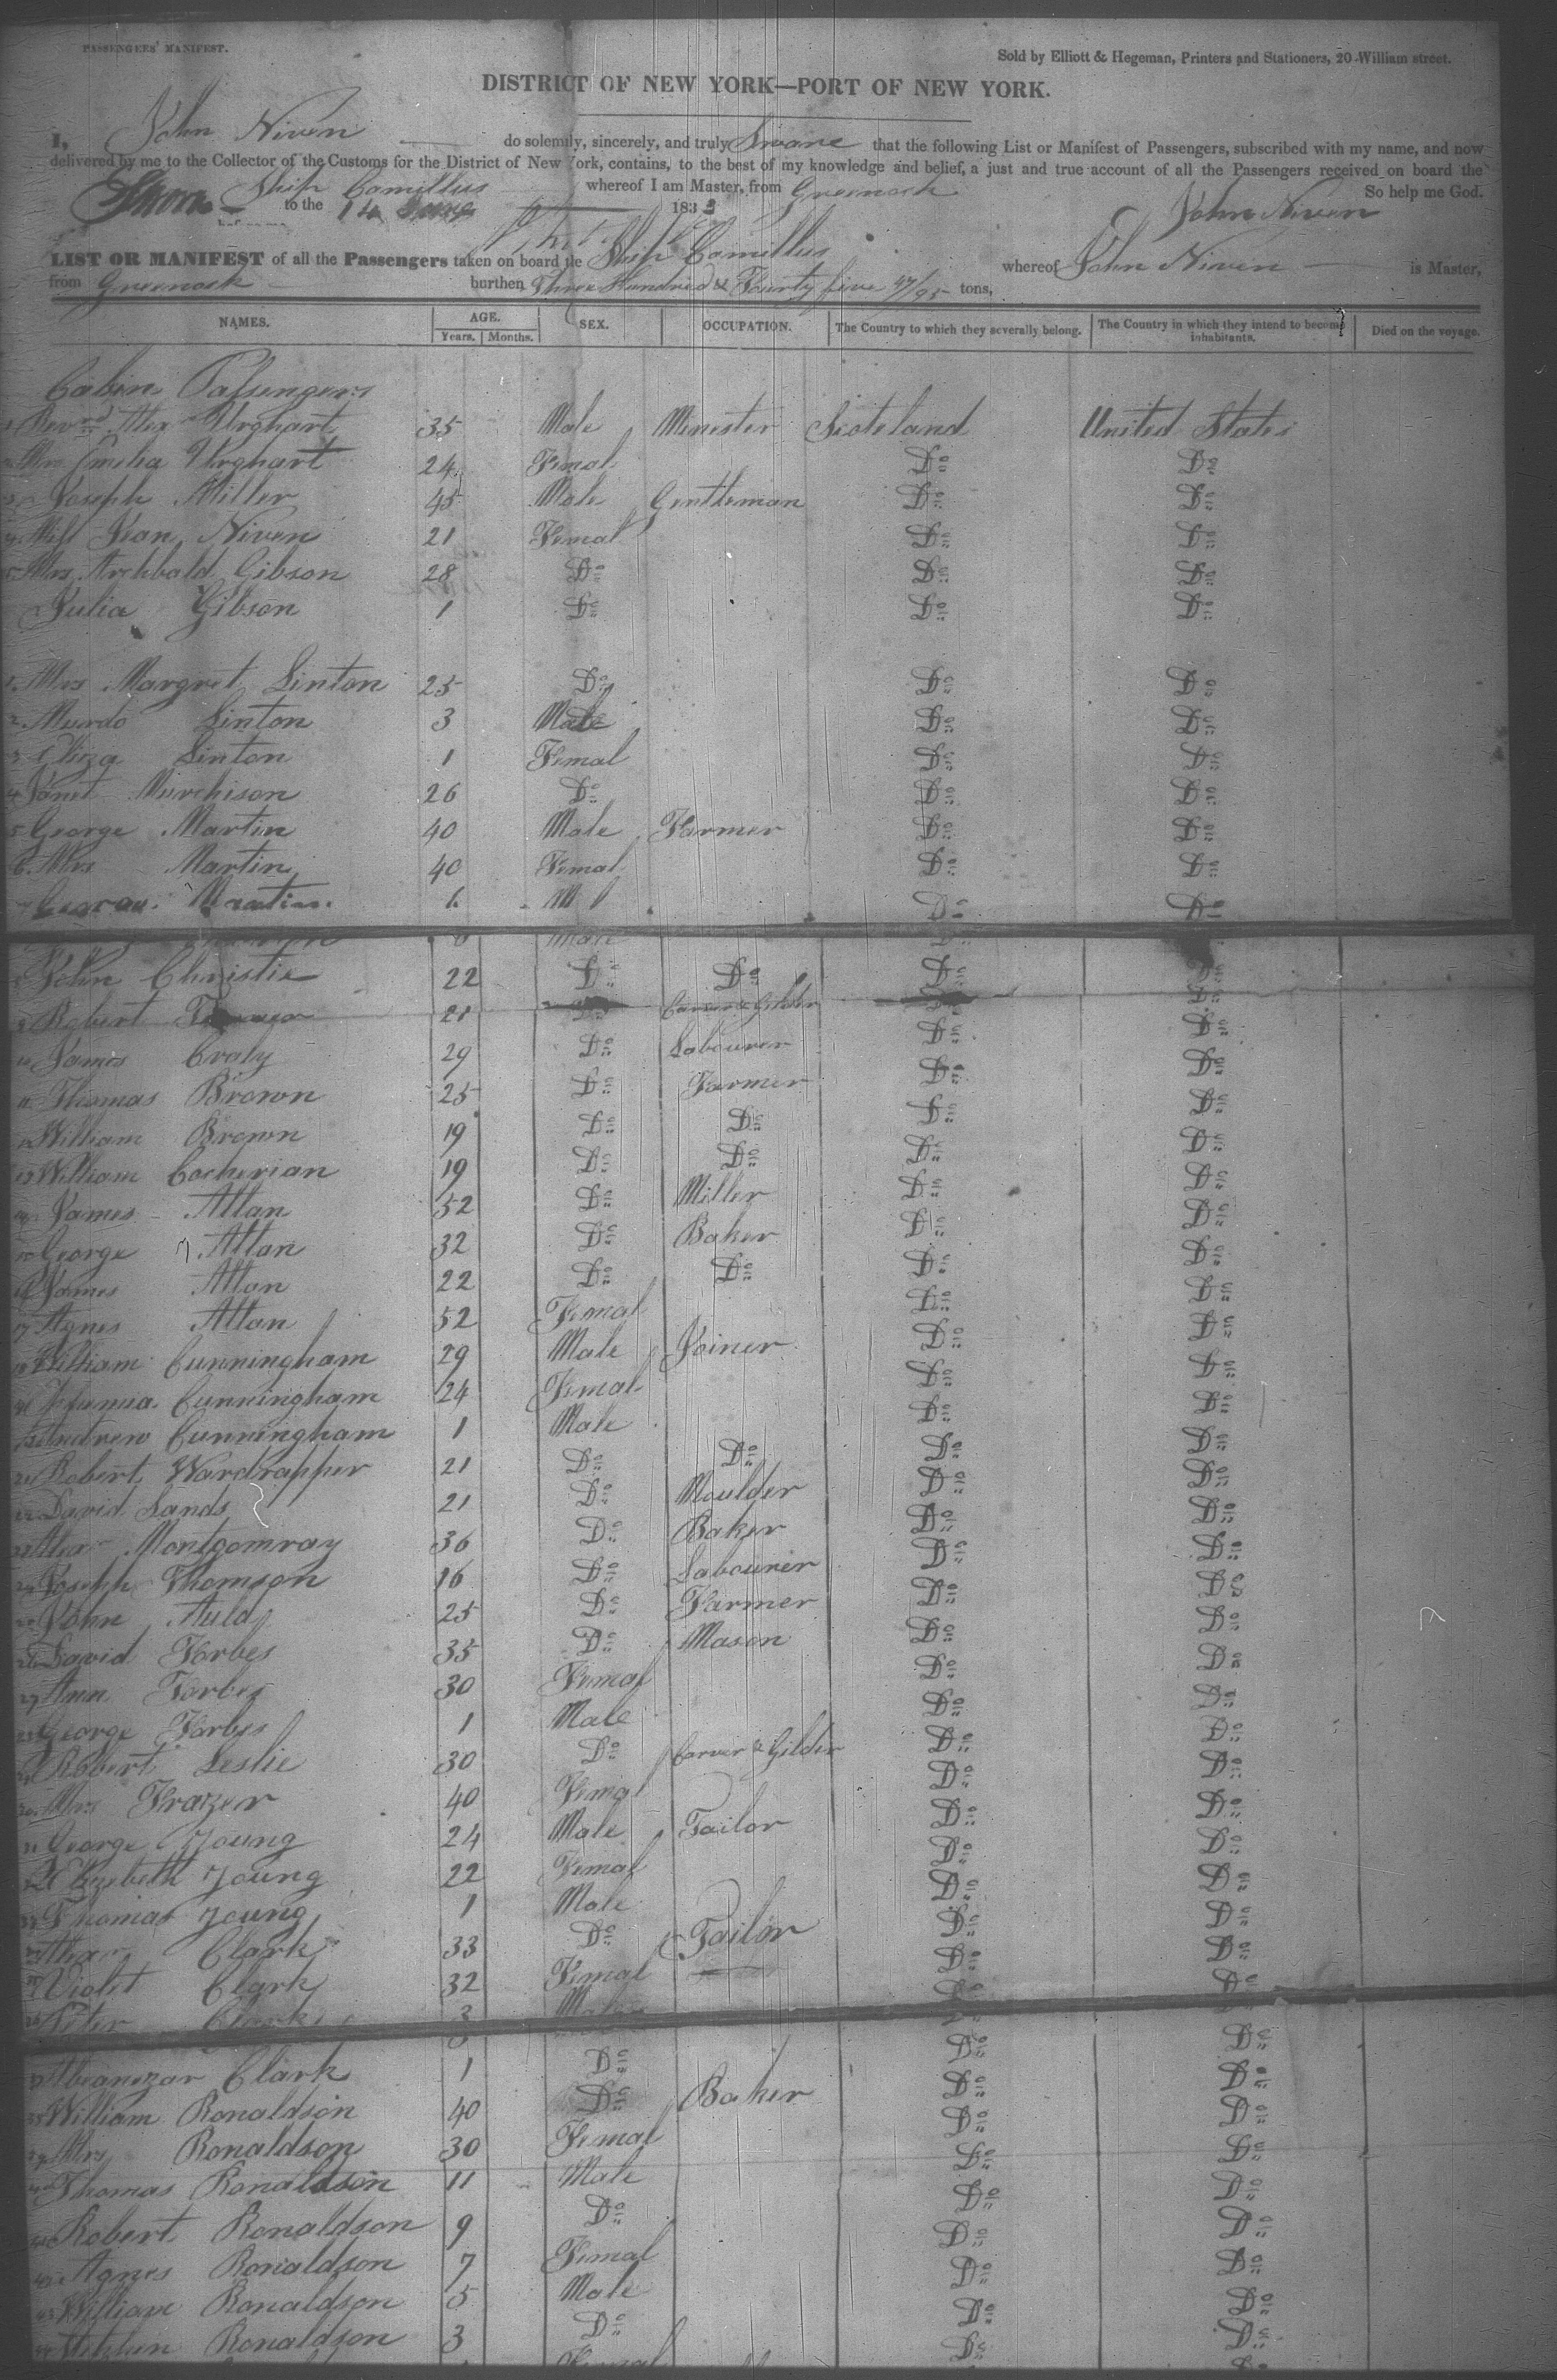 PASSENGERS' MANIFEST.
Sold by Elliott & Hegeman, Printers and Stationers, 20 William street.
DISTRICT OF NEW YORK—PORT OF NEW YORK.
I, John Niven do solemnly, sincerely, and truly Sweare that the following List or Manifest of Passengers, subscribed with my name, and now
delivered by me to the Collector of the Customs for the District of New York, contains, to the best of my knowledge and belief, a just and true account of all the Passengers received on board the
Ship Camillus whereof I am Master, from Greenock So help me God.
Sworn to the 14 183 John Niven
LIST OR MANIFEST of all the Passengers taken on board the Ship Camillus whereof John Niven is Master,
from Greenock burthen Three Hundred & Fourty five 47/95 tons,
NAMES. AGE. SEX. OCCUPATION. The Country to which they severally belong. The Country in which they intend to become inhabitants. Died on the voyage.
Years. Months.
Cabin Passengers
1 Revrd Alex Urghart 35 Male Minester Scoteland United States
2 Mrs Emelia Urghart 24 Femal Do Do
3 Joseph Miller 45 Male Gentleman Do Do
4 Miss Jean Niven 21 Femal Do Do
5 Mrs Archbald Gibson 28 Do Do Do
Julia Gibson 1 Do Do Do
1 Mrs Margret Linton 25 Do Do Do
2 Murdo Linton 3 Male Do Do
3 Eliza Linton 1 Femal Do Do
4 Janet Murchison 26 Do Do Do
5 George Martin 40 Male Farmer Do Do
6 Mrs Martin 40 Femal Do Do
George Martin 6 Do Do
John Christie 22 Do Do Do Do
9 Robert 21 Do Carver & Gilder Do
10 James Craly 29 Do Labourer Do Do
11 Thomas Brown 25 Do Farmer Do Do
12 William Brown 19 Do Do Do Do
13 William Cocherian 19 Do Do Do Do
14 James Allan 52 Do Miller Do Do
15 George Allan 32 Do Baker Do Do
16 James Allan 22 Do Do Do Do
17 Agnes Allan 52 Femal Do Do
18 William Cunningham 29 Male Joiner Do Do
19 Cunningham 24 Femal Do Do
20 Andrew Cunningham 1 Male Do Do
21 Robert Wardrapper 21 Do Do Do Do
22 David Sands 21 Do Moulder Do Do
23 Alexr Montgomray 36 Do Baker Do Do
24 Joseph Thomson 16 Do Labourer Do Do
25 John Auld 25 Do Farmer Do Do
26 David Forbes 35 Do Mason Do Do
27 Ann Forbes 30 Femal Do Do
28 George Forbes 1 Male Do Do
29 Robert Leslie 30 Do Carver & Gilder Do Do
30 Mrs Frazer 40 Femal Do Do
31 George Young 24 Male Tailor Do Do
32 Elizebeth Young 22 Femal Do Do
33 Thomas Young 1 Male Do Do
34 Clark 33 Do Tailor Do Do
35 Violet Clark 32 Femal Do Do
36 Peter Clark 3 Male Do
37 Clark 1 Do Do Do
38 William Ronaldson 40 Do Baker Do Do
39 Mrs Ronaldson 30 Femal Do Do
40 Thomas Ronaldson 11 Male Do Do
41 Robert Ronaldson 9 Do Do Do
42 Agnes Ronaldson 7 Femal Do Do
43 William Ronaldson 5 Male Do Do
44 Ronaldson 3 Do Do Do